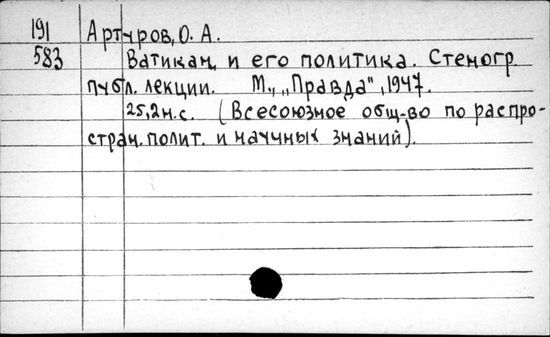 191 Артуров, О. А.
583 Ватикан и его политика. Стеногр.
публ. лекции. М., „Правда", 1947.
25, 2 н. с. (Всесоюзное общ-во по распро-
стран. полит. и научных знаний).